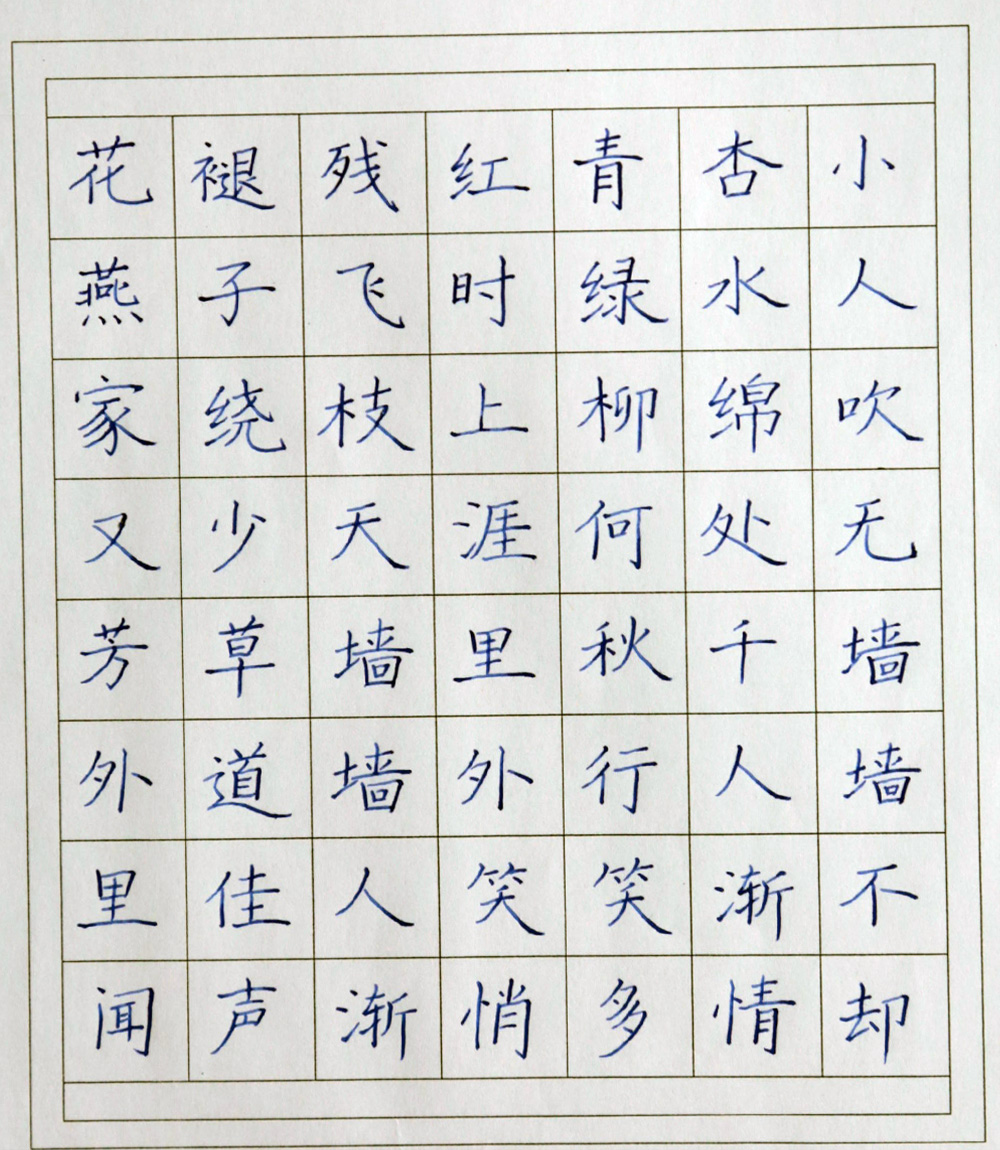 花褪残红青杏小
燕子飞时绿水人
家绕枝上柳绵吹
又少天涯何处无
芳草墙里秋千墙
外道墙外行人墙
里佳人笑笑渐不
闻声渐悄多情却